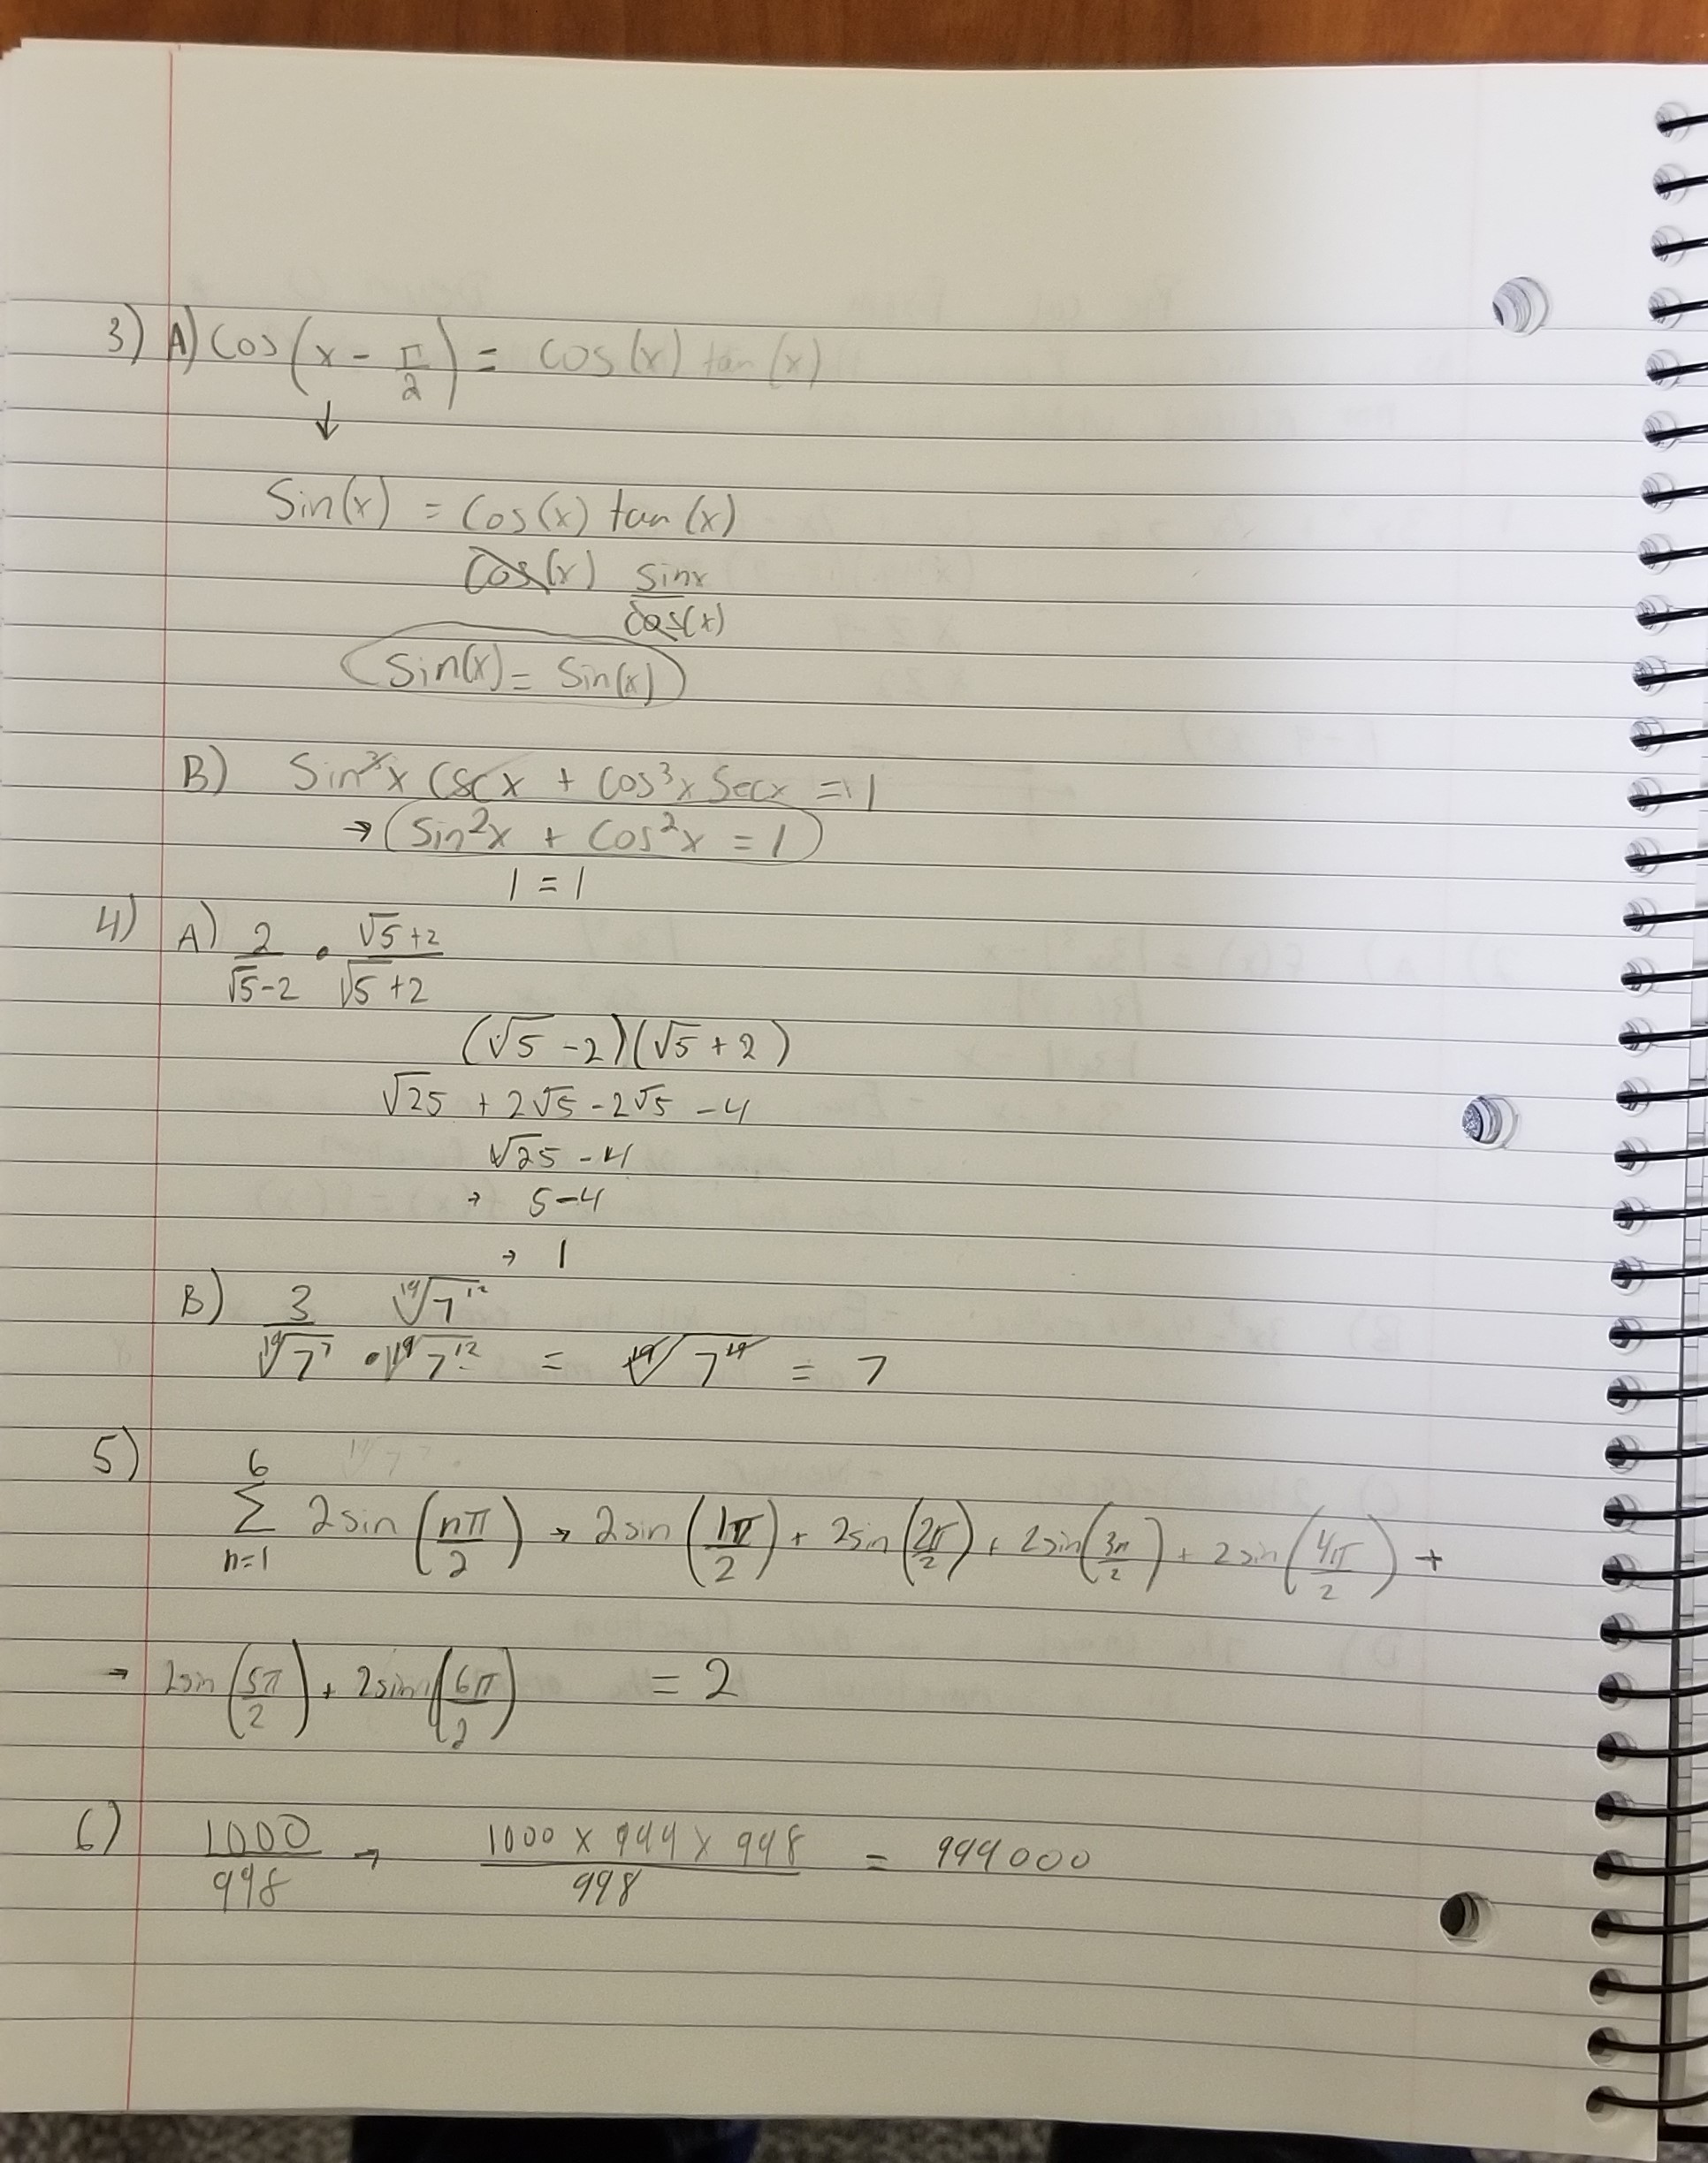 3) A) Cos(x - π/2) = cos(x) tan(x)
↓
Sin(x) = Cos(x) tan(x)
Cos(x) Sinx/Cos(x)
Sin(x) = Sin(x)
B) Sin³x Cscx + Cos³x Secx = 1
→ Sin²x + Cos²x = 1
1 = 1
4) A) 2/(√5-2) • (√5+2)/(√5+2)
(√5 - 2)(√5 + 2)
√25 + 2√5 - 2√5 - 4
√25 - 4
→ 5-4
→ 1
B) 3/¹⁹√7⁷ • ¹⁹√7¹²/¹⁹√7¹² = ¹⁹√7¹⁹ = 7
5) 6 Σ n=1 2sin(nπ/2) → 2sin(1π/2) + 2sin(2π/2) + 2sin(3π/2) + 2sin(4π/2) +
→ 2sin(5π/2) + 2sin(6π/2) = 2
6) 1000/998 → 1000 x 999 x 998/998 = 999000